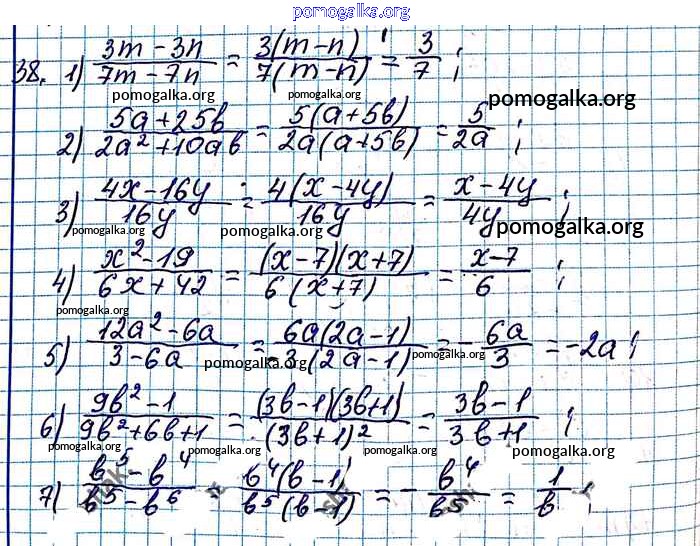 pomogalka.org
38. 1) (3m − 3n)/(7m − 7n) = 3(m − n)/7(m − n) = 3/7 ;
pomogalka.org pomogalka.org pomogalka.org
2) (5a + 25b)/(2a² + 10ab) = 5(a + 5b)/2a(a + 5b) = 5/2a ;
3) (4x − 16y)/16y = 4(x − 4y)/16y = (x − 4y)/4y ;
pomogalka.org pomogalka.org pomogalka.org
4) (x² − 19)/(6x + 42) = (x − 7)(x + 7)/6(x + 7) = (x − 7)/6 ;
pomogalka.org
5) (12a² − 6a)/(3 − 6a) = 6a(2a − 1)/−3(2a − 1) = − 6a/3 = −2a ;
pomogalka.org pomogalka.org
6) (9b² − 1)/(9b² + 6b + 1) = (3b − 1)(3b + 1)/(3b + 1)² = (3b − 1)/(3b + 1) ;
pomogalka.org pomogalka.org pomogalka.org
7) (b⁵ − b⁴)/(b⁵ − b⁶) = b⁴(b − 1)/b⁵(b − 1) = − b⁴/b⁵ = 1/b ;